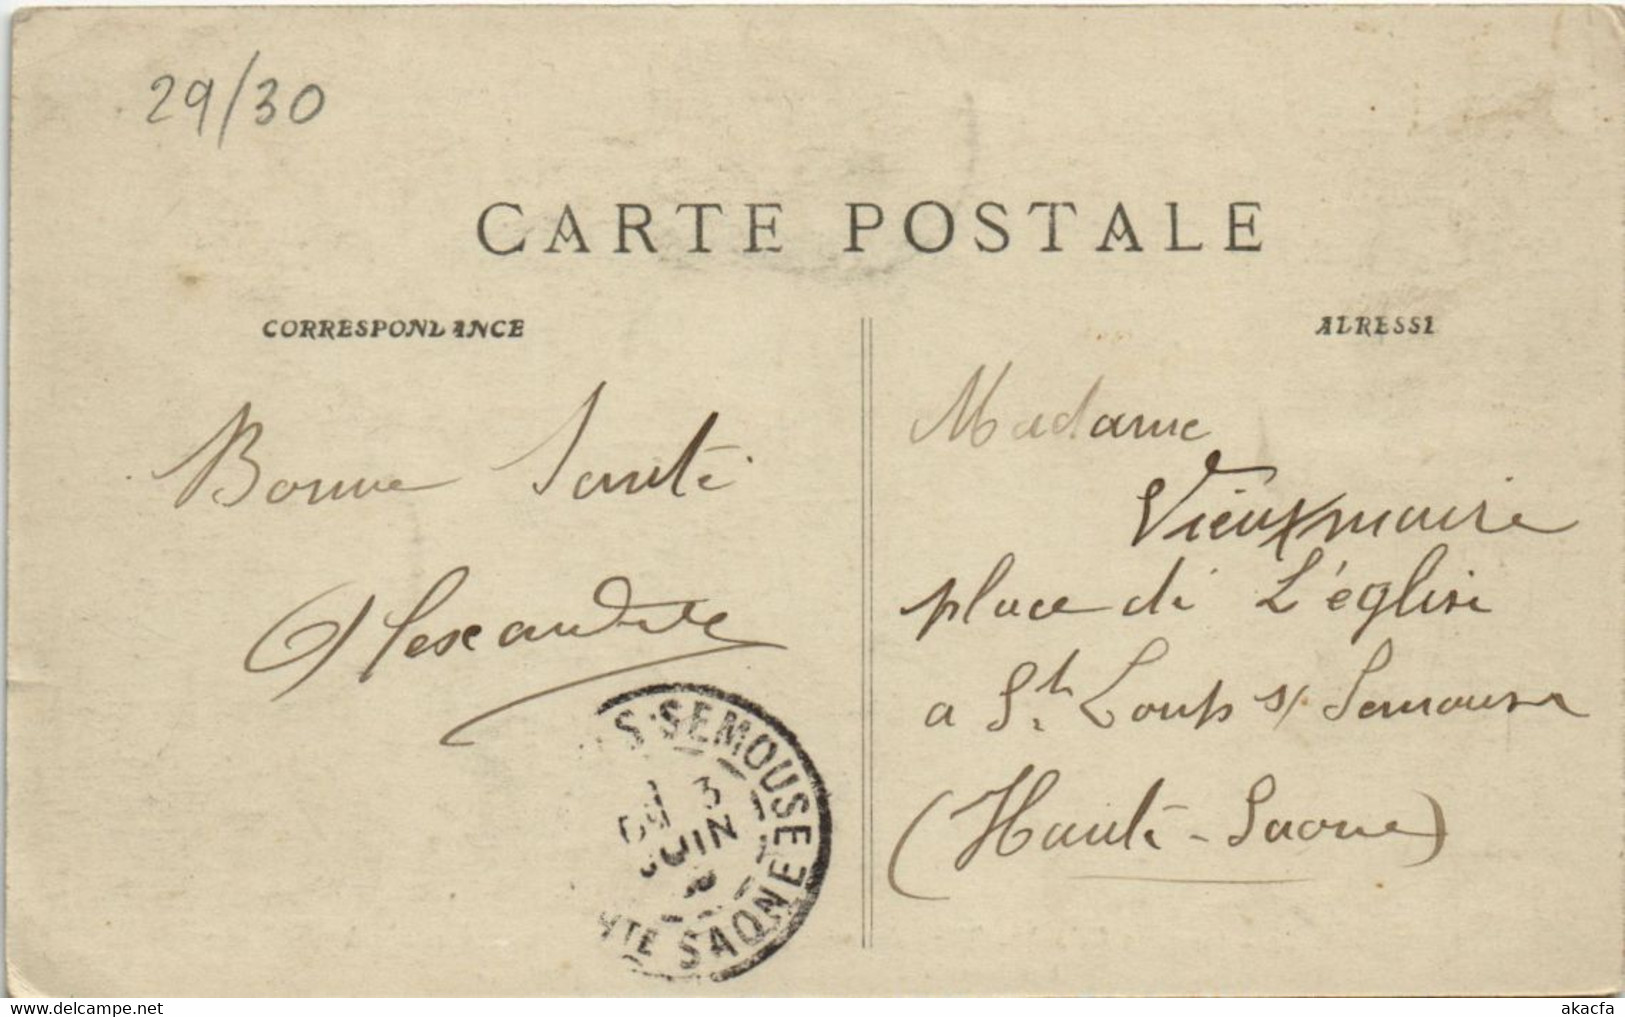 29/30
CARTE POSTALE
CORRESPONDANCE
ADRESSE
Bonne Santé
Alexandrine
Madame
Vieuxmaire
place de L'église
a St. Loup s/ Semouse
(Haute-Saone)
S-SEMOUSE
3
JUIN
HTE SAONE
akacfa